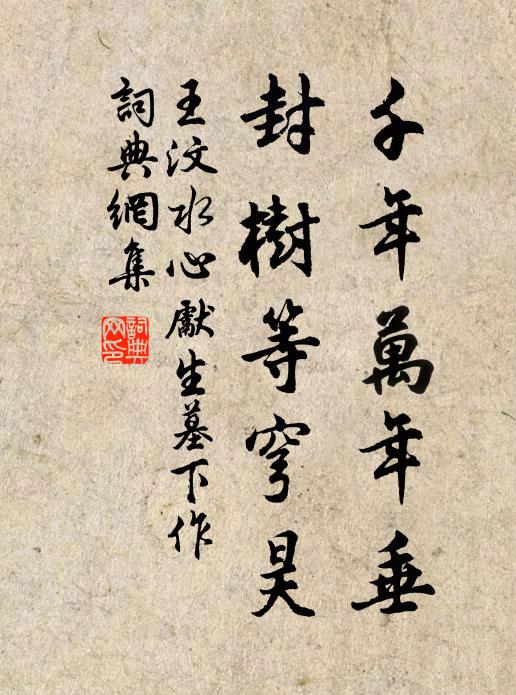 千年萬年垂
封樹等穹昊
王汶水心獻生墓下作
詞典網集
詞典
网印